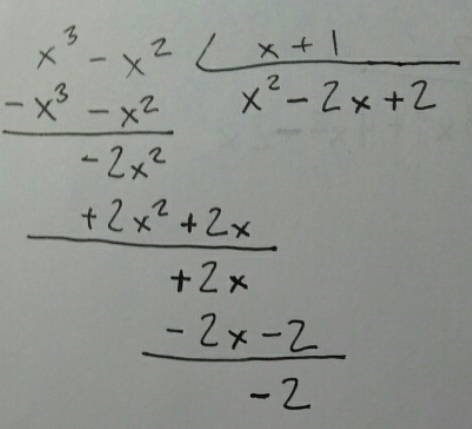 x³ - x² x + 1
- x³ - x² x² - 2x + 2
- 2x²
+ 2x² + 2x
+ 2x
- 2x - 2
- 2